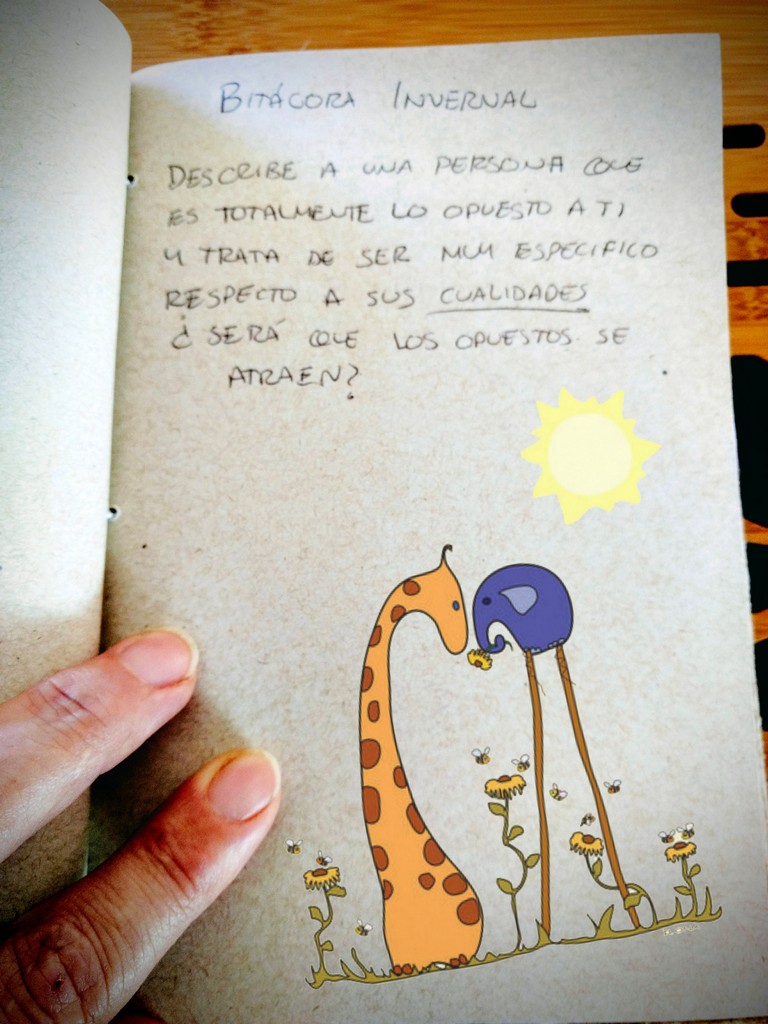 BITÁCORA INVERNAL
DESCRIBE A UNA PERSONA QUE
ES TOTALMENTE LO OPUESTO A TI
Y TRATA DE SER MUY ESPECIFICO
RESPECTO A SUS CUALIDADES
¿SERÁ QUE LOS OPUESTOS SE
ATRAEN?